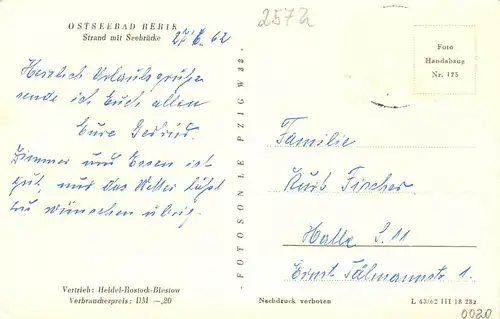 OSTSEEBAD RERIK
Strand mit Seebrücke
27.6.62
2572
Foto
Handabzug
Nr. 125
Herzlich Urlaubsgrüße
sende ich Euch allen
Eure Gertrud.
Zimmer und Essen ist
gut, nur das Wetter läßt
zu wünschen übrig.
FOTOSON LEIPZIG W 33
Familie
Kurt Fischer
Halle S. 11
Ernst Tälmannstr. 1.
Vertrieb: Heidel-Rostock-Biestow
Verbraucherpreis: DM —,20
Nachdruck verboten
L 43/62 III 18 28z
0020